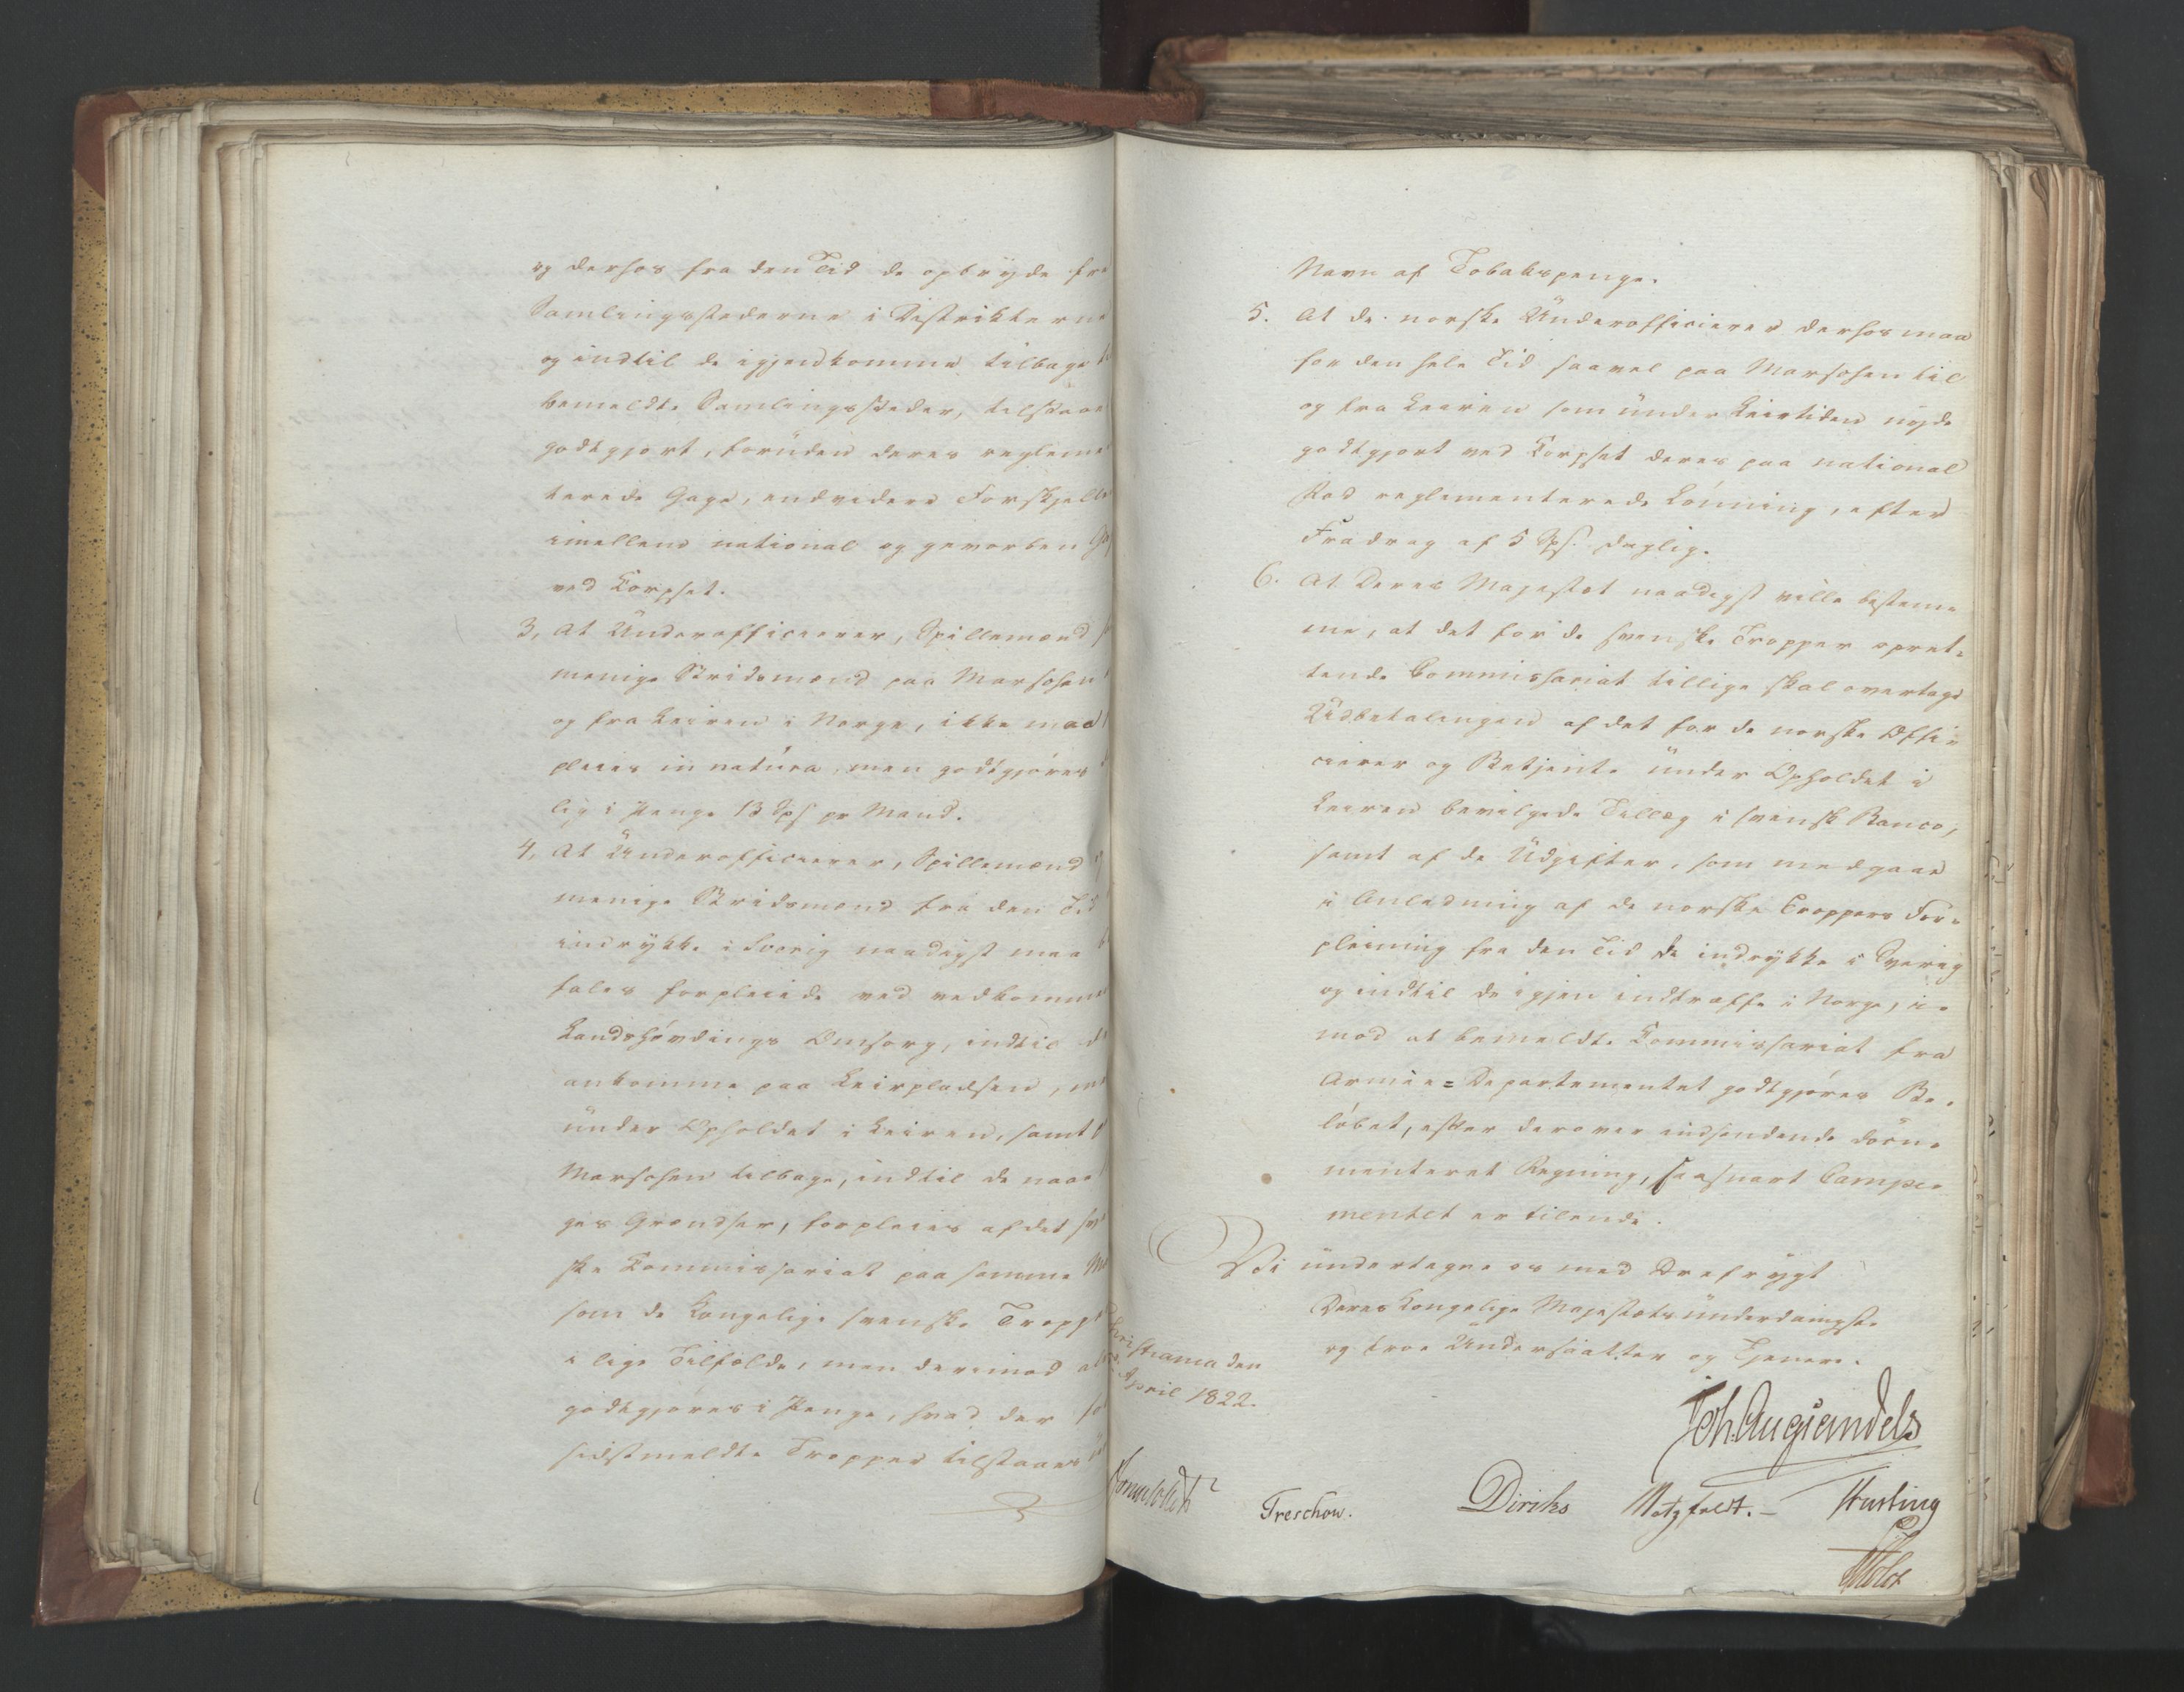 og derhos fra den Tid de opbryde fra
Samlingsstederne i Distrikterne
og indtil de igjen komme tilbage
bemeldte Samlingssteder, tilstaaes
godtgjort, foruden deres reglemen
terede Gage, endvidere Forskjellen
imellem national og geworben
ved Korpset.
3, At Underofficierer, Spillemænd
menige Stridsmænd paa Marschen
og fra Leiren i Norge, ikke maae
pleies in natura, men godtgjøres
lig i Penge 13 Sps pr Mand.
4, At Underofficierer, Spillemænd
menige Stridsmænd fra den Tid
indrykke i Sverig naadigst maa
fales forpleiede ved vedkomme
Landshøvdings Omsorg, indtil de
ankomme paa Leirpladsen, men
under Opholdet i Leiren, samt
Marschen tilbage, indtil de naae
ges Grændser, forpleies af det sven
ske Kommissariat paa samme
som de Kongelige svenske Tropper
i lige Tilfælde, men derimod
godtgjøres i Penge, hvad der
sidstmeldte Tropper tilstaaes
Navn af Tobakspenge.
5. At de norske Underofficierer derhos maa
for den hele Tid saavel paa Marschen til
og fra Leiren som under Leirtiden nyde
godtgjort ved Korpset deres paa national
Fod reglementerede Lønning, efter
Fradrag af 5 Sps. daglig.
6. At Deres Majestæt naadigst ville bestem-
me, at det for de svenske Tropper opret-
tende Commissariat tillige skal overtage
Udbetalingen af det for de norske Offi-
cierer og Betjente under Opholdet i
Leiren bevilgede Tillæg i svensk Banco,
samt af de Udgifter, som medgaae
i Anledning af de norske Troppers For-
pleining fra den Tid de indrykke i Sverig
og indtil de igjen indtræffe i Norge, i-
mod at bemeldte Kommissariat fra
Armee-Departementet godtgjøres Be-
løbet, efter derover indsendende docu-
menteret Regning, saasnart Campe-
mentet er tilende.
Vi undertegne os med Ærefrygt
Deres Kongelige Majestæts underdanigste
og troe Undersaatter og Tjenere.
Christiania den
April 1822.
Joh. Aug. Sandels
Sommerhielm
Treschow.
Diriks
Motzfeldt.
Fasting
Holst